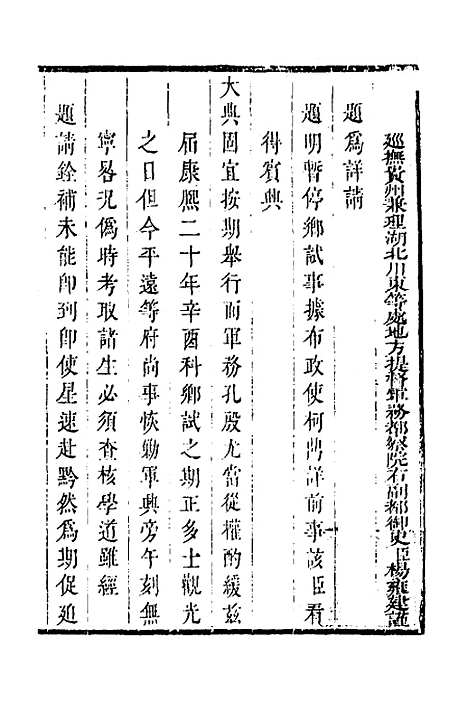 巡撫貴州兼理湖北川東等處地方提督軍務都察院右副都御史臣楊雍建謹
題爲詳請
題明暫停鄉試事據布政使柯鼎詳前事該臣看
得賓典
大典固宜按期舉行而軍務孔殷尤當從權酌緩茲
屆康熙二十年辛酉科鄉試之期正多士觀光
之日但今平遠等府尚事恢勦軍興旁午刻無
寧晷况僞時考取諸生必須查核學道雖經
題請銓補未能卽到卽使星速赴黔然爲期促廹